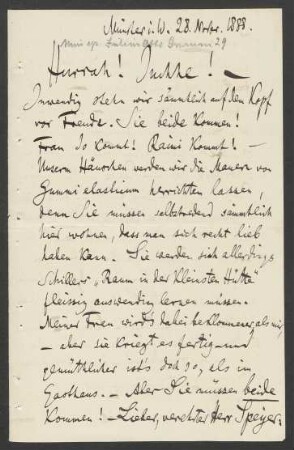 Münster i. W. 28. Novbr. 1888.
Hurrah! Juchhe!
Inwendig stehn wir sämmtlich auf den Kopf
vor Freude. Sie beide kommen!
Frau Jo kommt! Raimi kommt! –
Unserm Häuschen werden wir die Mauern von
Gummi elasticum herrichten lassen,
denn Sie müssen selbstredend sämmtlich
hier wohnen, dass man sich recht lieb
haben kann. Sie werden sich allerdings
Schillers „Raum in der kleinsten Hütte“
fleissig auswendig lernen müssen.
Meiner Frau wird's dabei beklommener als mir,
– aber sie kriegt es fertig – und
gemüthlicher ist's doch so, als im
Gasthaus. – Aber Sie müssen beide
kommen! – Lieber, verehrter Herr Speyer,